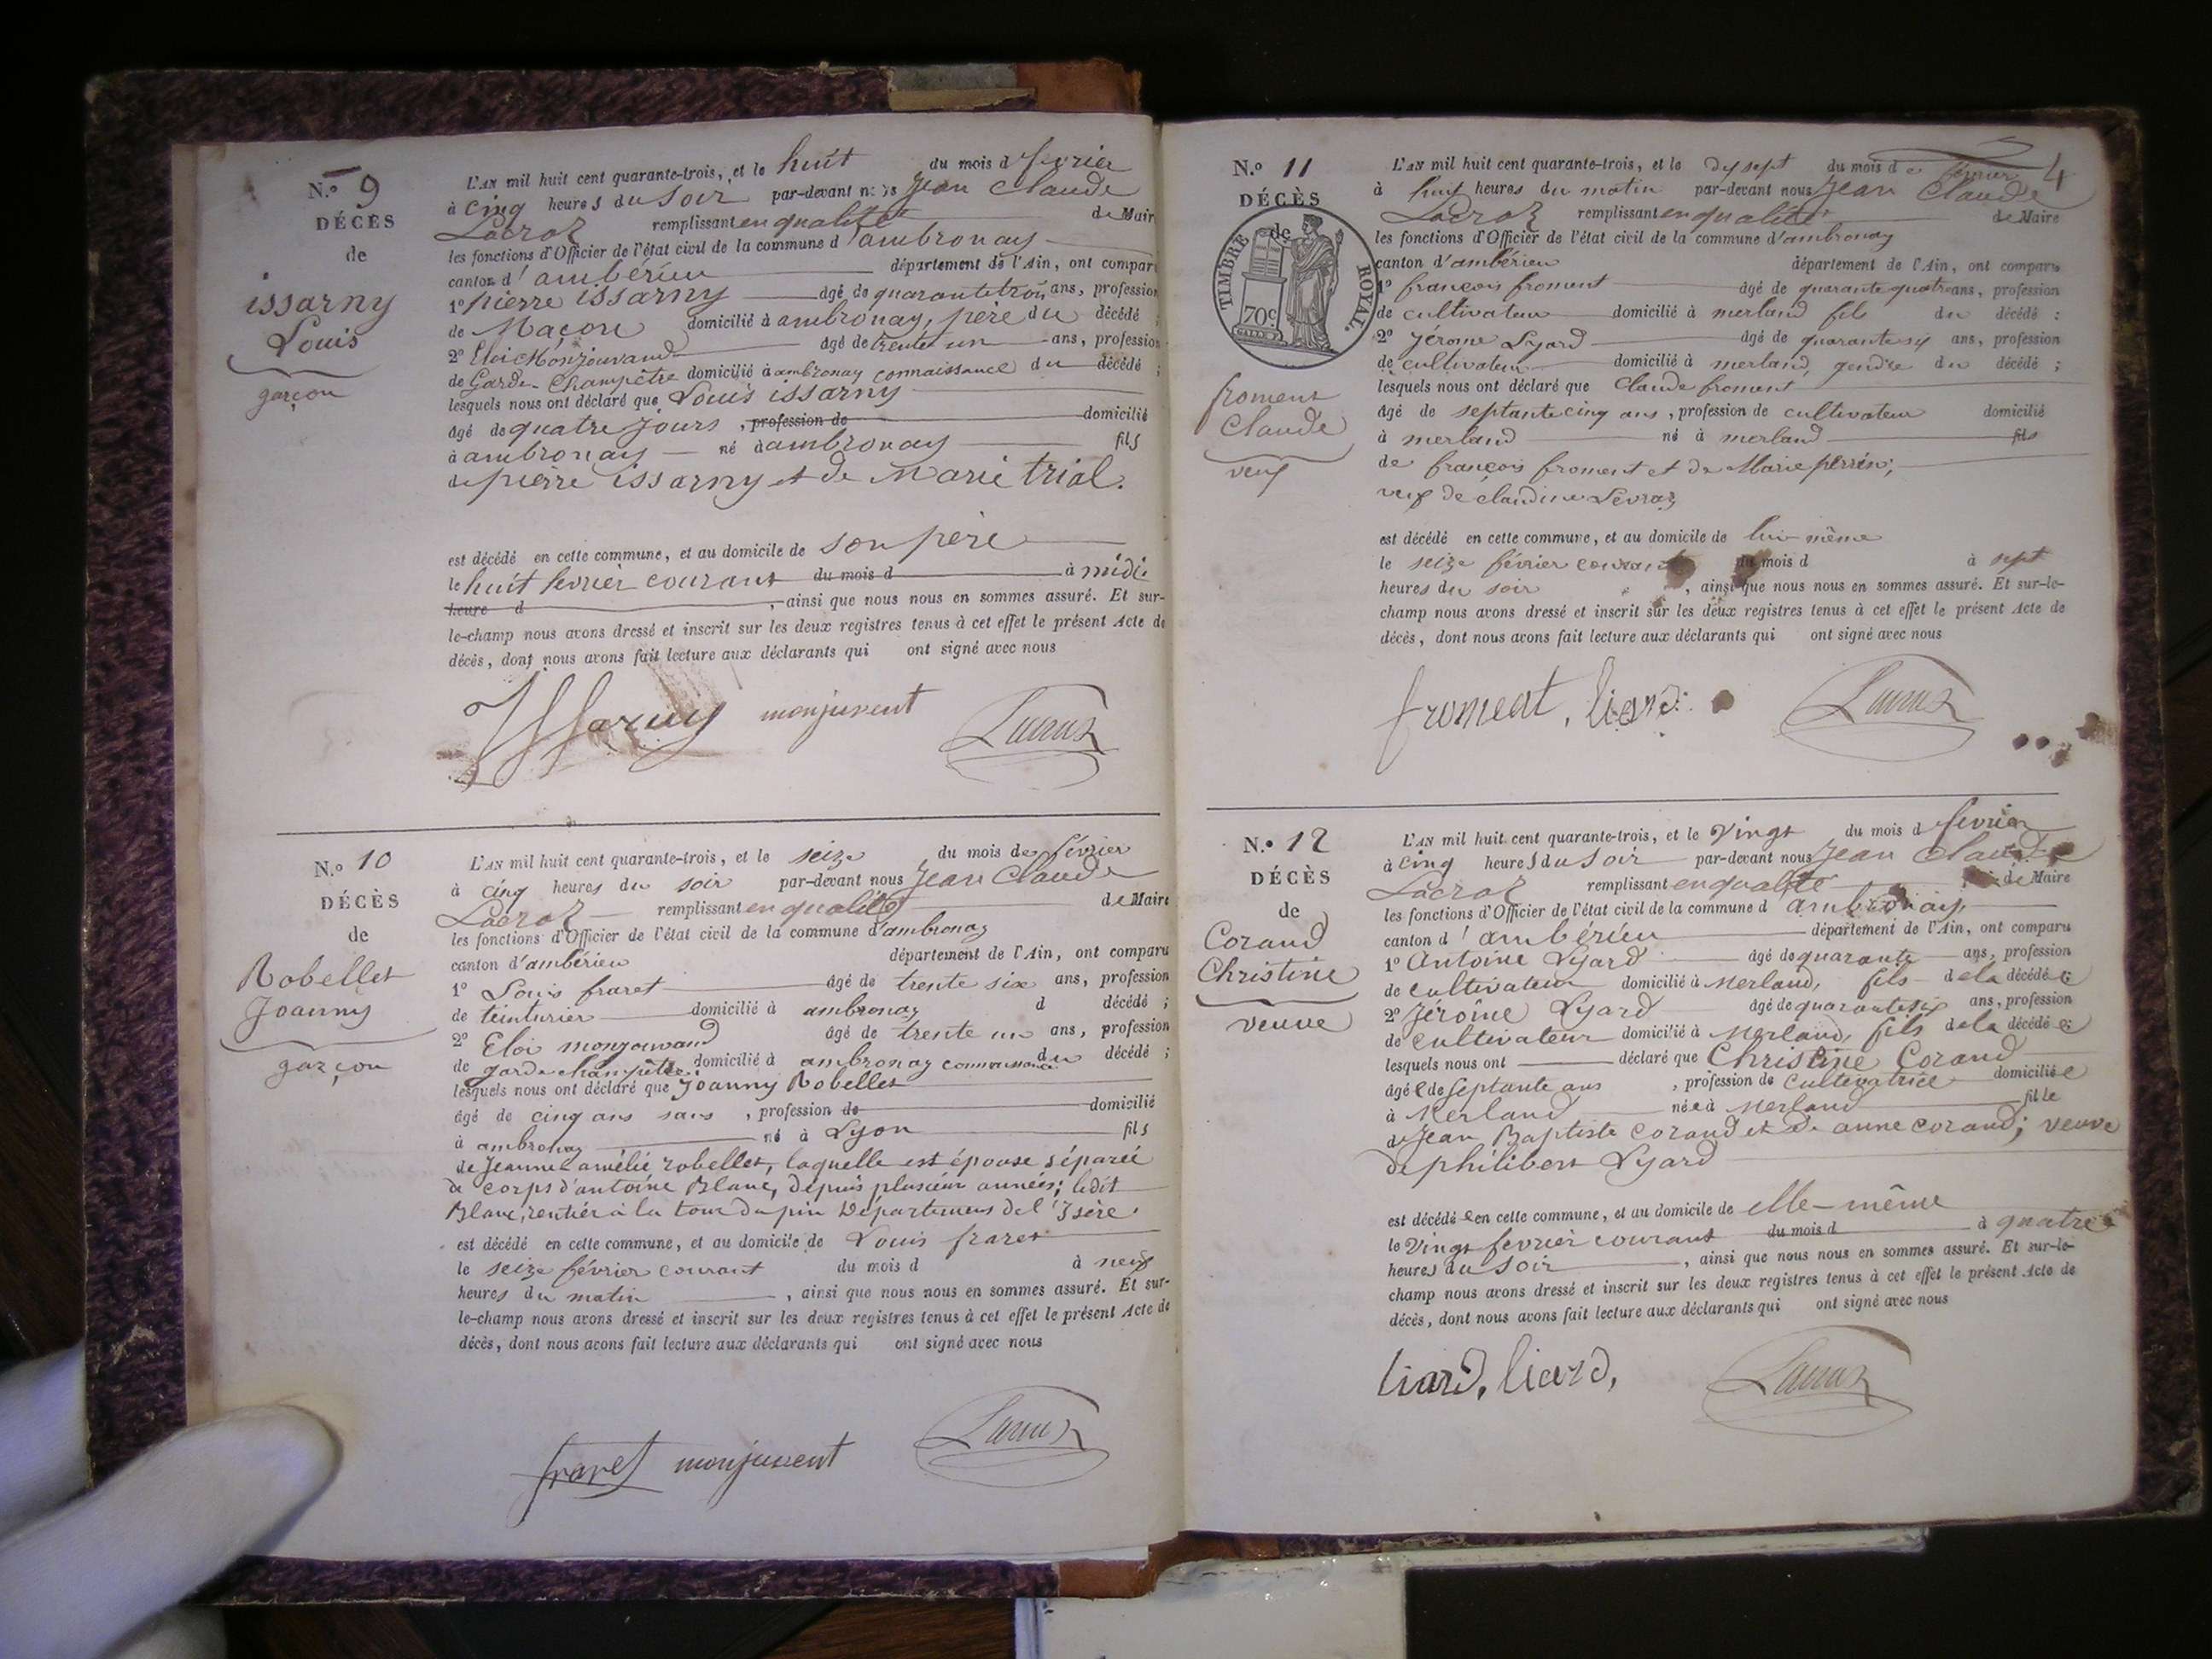 N.º 9
DÉCÈS
de
issarny
Louis
garçon
L'AN mil huit cent quarante-trois, et le huit du mois d février
à cinq heures du soir par-devant nous Jean Claude
Lacroz remplissant en qualité de Maire
les fonctions d'Officier de l'état civil de la commune d'ambronay
canton d'ambérieu département de l'Ain, ont comparu
1º pierre issarny âgé de quarante trois ans, profession
de Maçon domicilié à ambronay, père du décédé ;
2º Eloi Monjouvand âgé de trente un ans, profession
de Garde-Champêtre domicilié à ambronay connaissance du décédé ;
lesquels nous ont déclaré que Louis issarny
âgé de quatre jours, profession de domicilié
à ambronay né à ambronay fils
de pierre issarny et de Marie trial.
est décédé en cette commune, et au domicile de son père
le huit fevrier courant du mois d à midi
heure d , ainsi que nous nous en sommes assuré. Et sur-
le-champ nous avons dressé et inscrit sur les deux registres tenus à cet effet le présent Acte de
décès, dont nous avons fait lecture aux déclarants qui ont signé avec nous
Issarny monjuvent Lacroz
N.º 10
DÉCÈS
de
Robellet
Joanny
garçon
L'AN mil huit cent quarante-trois, et le seize du mois de février
à cinq heures du soir par-devant nous Jean Claude
Lacroz remplissant en qualité de Maire
les fonctions d'Officier de l'état civil de la commune d'ambronay
canton d'ambérieu département de l'Ain, ont comparu
1º Louis fraret âgé de trente six ans, profession
de teinturier domicilié à ambronay d décédé ;
2º Eloi monjouvand âgé de trente un ans, profession
de garde champêtre domicilié à ambronay connaissance du décédé ;
lesquels nous ont déclaré que Joanny Robellet
âgé de cinq ans sans, profession de domicilié
à ambronay né à Lyon fils
de Jeanne amélie robellet, laquelle est épouse séparée
de corps d'antoine Blanc, depuis plusieurs années; ledit
Blanc, rentier à la tour du pin Département de l'Isère.
est décédé en cette commune, et au domicile de Louis fraret
le seize février courant du mois d à neuf
heures du matin , ainsi que nous nous en sommes assuré. Et sur-
le-champ nous avons dressé et inscrit sur les deux registres tenus à cet effet le présent Acte de
décès, dont nous avons fait lecture aux déclarants qui ont signé avec nous
fraret monjuvent Lacroz
4
N.º 11
DÉCÈS
de
TIMBRE ROYAL.
70c
froment
Claude
veuf
L'AN mil huit cent quarante-trois, et le dysept du mois de février
à huit heures du matin par-devant nous Jean Claude
Lacroz remplissant en qualité de Maire
les fonctions d'Officier de l'état civil de la commune d'ambronay
canton d'ambérieu département de l'Ain, ont comparu
1º françois froment âgé de quarante quatre ans, profession
de cultivateur domicilié à merland fils du décédé ;
2º Jérome Lyard âgé de quarante six ans, profession
de cultivateur domicilié à merland, gendre du décédé ;
lesquels nous ont déclaré que Claude froment
âgé de septante cinq ans, profession de cultivateur domicilié
à merland né à merland fils
de françois froment et de Marie perrin;
veuf de claudine Levraz
est décédé en cette commune, et au domicile de lui même
le seize février courant du mois d à sept
heures du soir , ainsi que nous nous en sommes assuré. Et sur-le-
champ nous avons dressé et inscrit sur les deux registres tenus à cet effet le présent Acte de
décès, dont nous avons fait lecture aux déclarants qui ont signé avec nous
froment, liard Lacroz
N.º 12
DÉCÈS
de
Corand
Christine
veuve
L'AN mil huit cent quarante-trois, et le vingt du mois d février
à cinq heures du soir par-devant nous Jean Claude
Lacroz remplissant en qualité de Maire
les fonctions d'Officier de l'état civil de la commune d ambronay
canton d'ambérieu département de l'Ain, ont comparu
1º Antoine Lyard âgé de quarante ans, profession
de cultivateur domicilié à Merland, fils de la décédée ;
2º Jérôme Lyard âgé de quarante six ans, profession
de cultivateur domicilié à Merland, fils de la décédée ;
lesquels nous ont déclaré que Christine Corand
âgée de septante ans, profession de cultivatrice domiciliée
à Merland née à Merland fille
de Jean Baptiste corand et de anne corand; veuve
de philibert Lyard
est décédée en cette commune, et au domicile de elle-même
le vingt fevrier courant du mois d à quatre
heures du soir , ainsi que nous nous en sommes assuré. Et sur-le-
champ nous avons dressé et inscrit sur les deux registres tenus à cet effet le présent Acte de
décès, dont nous avons fait lecture aux déclarants qui ont signé avec nous
liard, liard, Lacroz